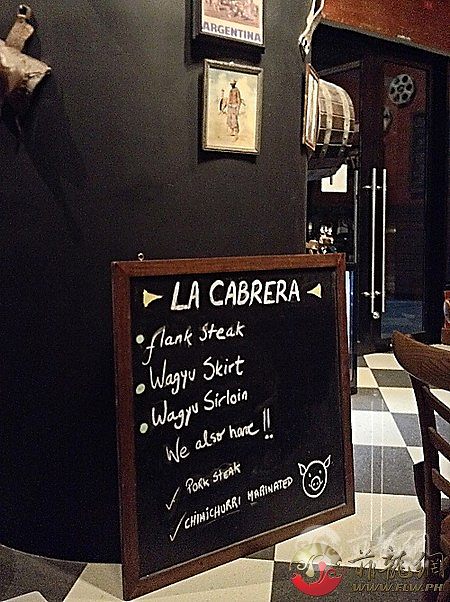 ARGENTINA
LA CABRERA
flank steak
Wagyu Skirt
Wagyu Sirloin
We also have !!
✓ PORK STEAK
✓ CHIMICHURRI MARINATED
WWW.FLW.PH